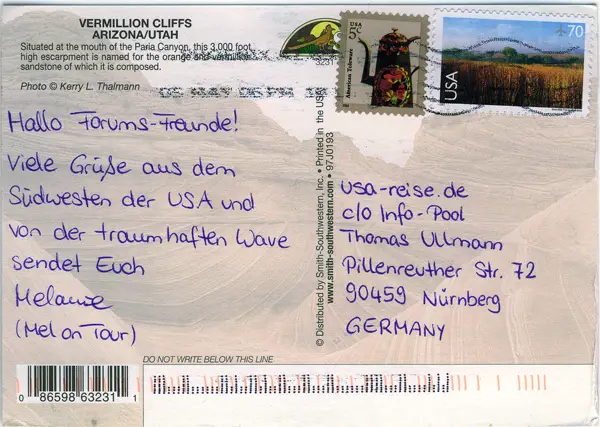 VERMILLION CLIFFS
ARIZONA/UTAH
Situated at the mouth of the Paria Canyon, this 3,000 foot
high escarpment is named for the orange and vermillion
sandstone of which it is composed.
Photo © Kerry L. Thalmann
Hallo Forums-Freunde!
Viele Grüße aus dem
Südwesten der USA und
von der traumhaften Wave
sendet Euch
Melanie
(Mel on Tour)
© Distributed by Smith-Southwestern, Inc. • Printed in the USA
www.smith-southwestern.com • 97J0193
5c
American Toleware
USA
70
usa-reise.de
c/o Info-Pool
Thomas Ullmann
Pillenreuther Str. 72
90459 Nürnberg
GERMANY
DO NOT WRITE BELOW THIS LINE
0 86598 63231 1